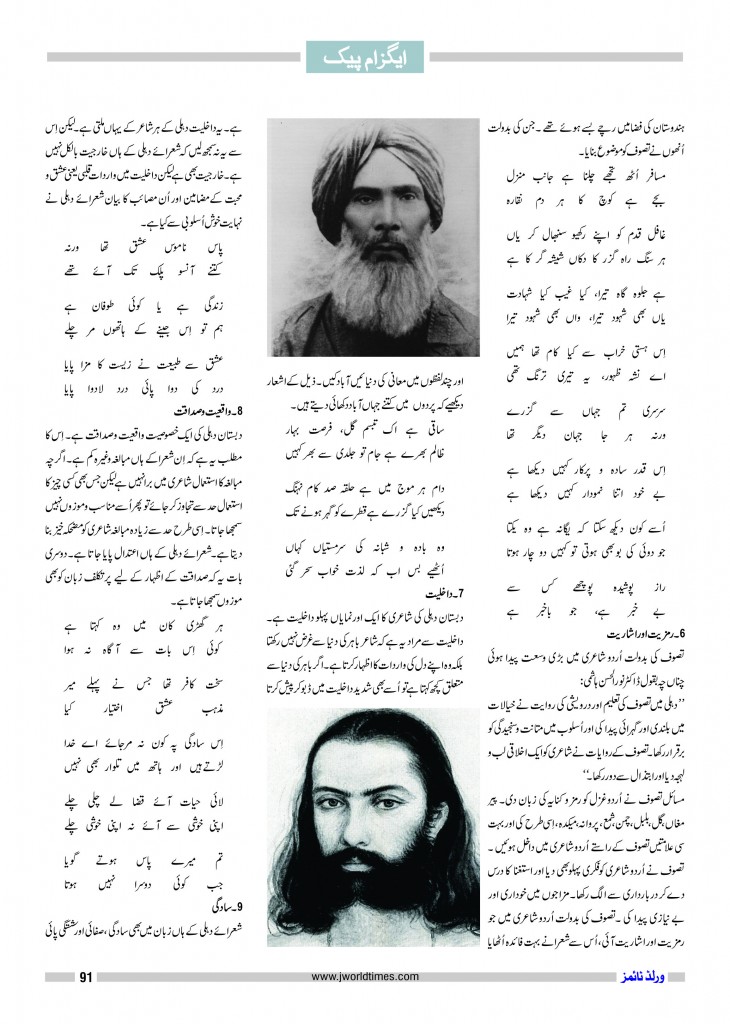 ایگزام پیک
ہندوستان کی فضا میں رچے بسے ہوئے تھے۔ جن کی بدولت
اُنھوں نے تصوف کو موضوع بنایا۔
مسافر اُٹھ تجھے چلنا ہے جانب منزل
بجے ہے کوچ کا ہر دم نقارہ
غافل قدم کو اپنے رکھیو سنبھال کر یاں
ہر سنگ راہ گزر کا دکاں شیشہ گر کا ہے
ہے جلوہ گاہ تیرا، کیا غیب کیا شہادت
یاں بھی شہود تیرا، واں بھی شہود تیرا
اِس ہستی خراب سے کیا کام تھا ہمیں
اے نشہ ظہور، یہ تیری ترنگ تھی
سرسری تم جہاں سے گزرے
ورنہ ہر جا جہان دیگر تھا
اِس قدر سادہ و پرکار کہیں دیکھا ہے
بے خود اتنا نمودار کہیں دیکھا ہے
اُسے کون دیکھ سکتا کہ یگانہ ہے وہ یکتا
جو دوئی کی بو بھی ہوتی تو کہیں دو چار ہوتا
راز پوشیدہ پوچھے کس سے
بے خبر ہے، جو باخبر ہے
6۔رمزیت اور اشاریت
تصوف کی بدولت اُردو شاعری میں بڑی وسعت پیدا ہوئی
چناں چہ بقول ڈاکٹر نور الحسن ہاشمی:
’’دہلی میں تصوف کی تعلیم اور درویشی کی روایت نے خیالات
میں بلندی اور گہرائی پیدا کی اور اُسلوب میں متانت و سنجیدگی کو
برقرار رکھا۔ تصوف کے روایات نے شاعری کو ایک اخلاقی لب و
لہجہ دیا اور ابتذال سے دور رکھا۔‘‘
مسائل تصوف نے اُردو غزل کو رمز و کنایہ کی زبان دی۔ پیر
مغاں، گل، بلبل، چمن، شمع، پروانہ، میکدہ، اِسی طرح کی اور بہت
سی علامتیں تصوف کے راستے اُردو شاعری میں داخل ہوئیں۔
تصوف نے اُردو شاعری کو فکری پہلو بھی دیا اور استغنا کا درس
دے کر دربارداری سے الگ رکھا۔ مزاجوں میں خودداری اور
بے نیازی پیدا کی۔ تصوف کی بدولت اُردو شاعری میں جو
رمزیت اور اشاریت آئی، اُس سے شعرا نے بہت فائدہ اُٹھایا
اور چند لفظوں میں معانی کی دنیائیں آباد کیں۔ ذیل کے اشعار
دیکھیے کہ پردوں میں کتنے جہاں آباد دکھائی دیتے ہیں۔
ساقی ہے اک تبسم گل، فرصت بہار
ظالم بھرے ہے جام تو جلدی سے بھر کہیں
دام ہر موج میں ہے حلقہ صد کام نہنگ
دیکھیں کیا گزرے ہے قطرے کو گہر ہونے تک
وہ بادہ و شبانہ کی سرمستیاں کہاں
اُٹھیے بس اب کہ لذت خواب سحر گئی
7۔داخلیت
دبستان دہلی کی شاعری کا ایک اور نمایاں پہلو داخلیت ہے۔
داخلیت سے مراد یہ ہے کہ شاعر باہر کی دنیا سے غرض نہیں رکھتا
بلکہ وہ اپنے دل کی واردات کا اظہار کرتا ہے۔ اگر باہر کی دنیا سے
متعلق کچھ کہتا ہے تو اُسے بھی شدید داخلیت میں ڈبو کر پیش کرتا
ہے۔ یہ داخلیت دہلی کے ہر شاعر کے یہاں ملتی ہے۔ لیکن اِس
سے یہ نہ سمجھ لیں کہ شعرائے دہلی کے ہاں خارجیت بالکل نہیں
ہے۔ خارجیت بھی ہے لیکن داخلیت میں واردات قلبی یعنی عشق و
محبت کے مضامین اور اُن مصائب کا بیان شعرائے دہلی نے
نہایت خوش اُسلوبی سے کیا ہے۔
پاس ناموس عشق تھا ورنہ
کتنے آنسو پلک تک آئے تھے
زندگی ہے یا کوئی طوفان ہے
ہم تو اِس جینے کے ہاتھوں مر چلے
عشق سے طبیعت نے زیست کا مزا پایا
درد کی دوا پائی درد لادوا پایا
8۔واقعیت و صداقت
دبستان دہلی کی ایک خصوصیت واقعیت و صداقت ہے۔ اِس کا
مطلب یہ ہے کہ اِن شعرا کے ہاں مبالغہ وغیرہ کم ہے۔ اگرچہ
مبالغہ کا استعمال شاعری میں برا نہیں ہے لیکن جس بھی کسی چیز کا
استعمال حد سے تجاوز کر جائے تو پھر اُسے مناسب و موزوں نہیں
سمجھا جاتا۔ اِسی طرح حد سے زیادہ مبالغہ شاعری کو مضحکہ خیز بنا
دیتا ہے۔ شعرائے دہلی کے ہاں اعتدال پایا جاتا ہے۔ دوسری
بات یہ کہ صداقت کے اظہار کے لیے پر تکلف زبان کو بھی
موزوں سمجھا جاتا ہے۔
ہر گھڑی کان میں وہ کہتا ہے
کوئی اِس بات سے آگاہ نہ ہوا
سخت کافر تھا جس نے پہلے میر
مذہب عشق اختیار کیا
اِس سادگی پہ کون نہ مرجائے اے خدا
لڑتے ہیں اور ہاتھ میں تلوار بھی نہیں
لائی حیات آئے قضا لے چلی چلے
اپنی خوشی سے آئے نہ اپنی خوشی چلے
تم میرے پاس ہوتے گویا
جب کوئی دوسرا نہیں ہوتا
9۔سادگی
شعرائے دہلی کے ہاں زبان میں بھی سادگی، صفائی اور شستگی پائی
91
www.jworldtimes.com
ورلڈ ٹائمز